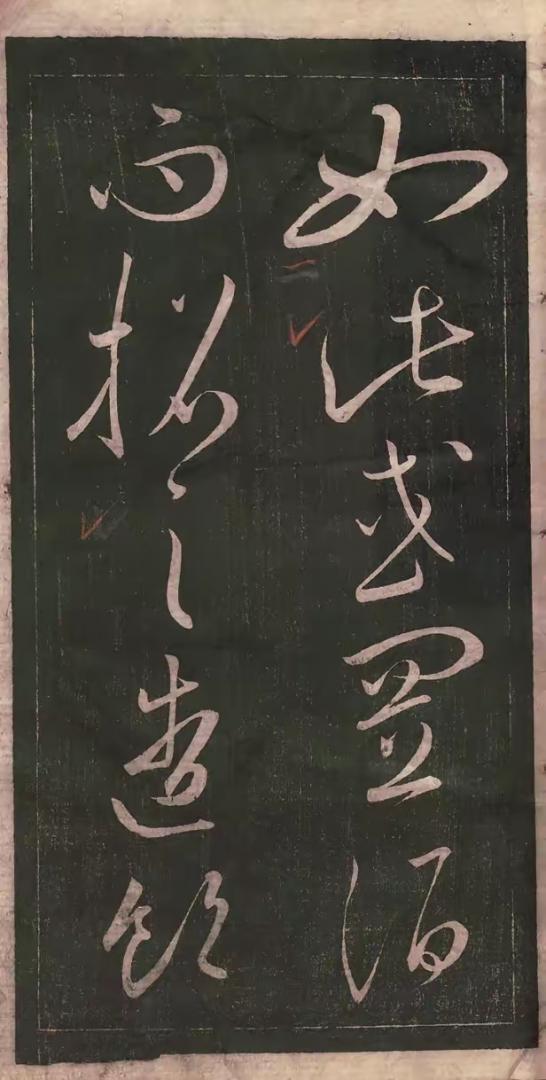 如此或置酒
而招之造飲